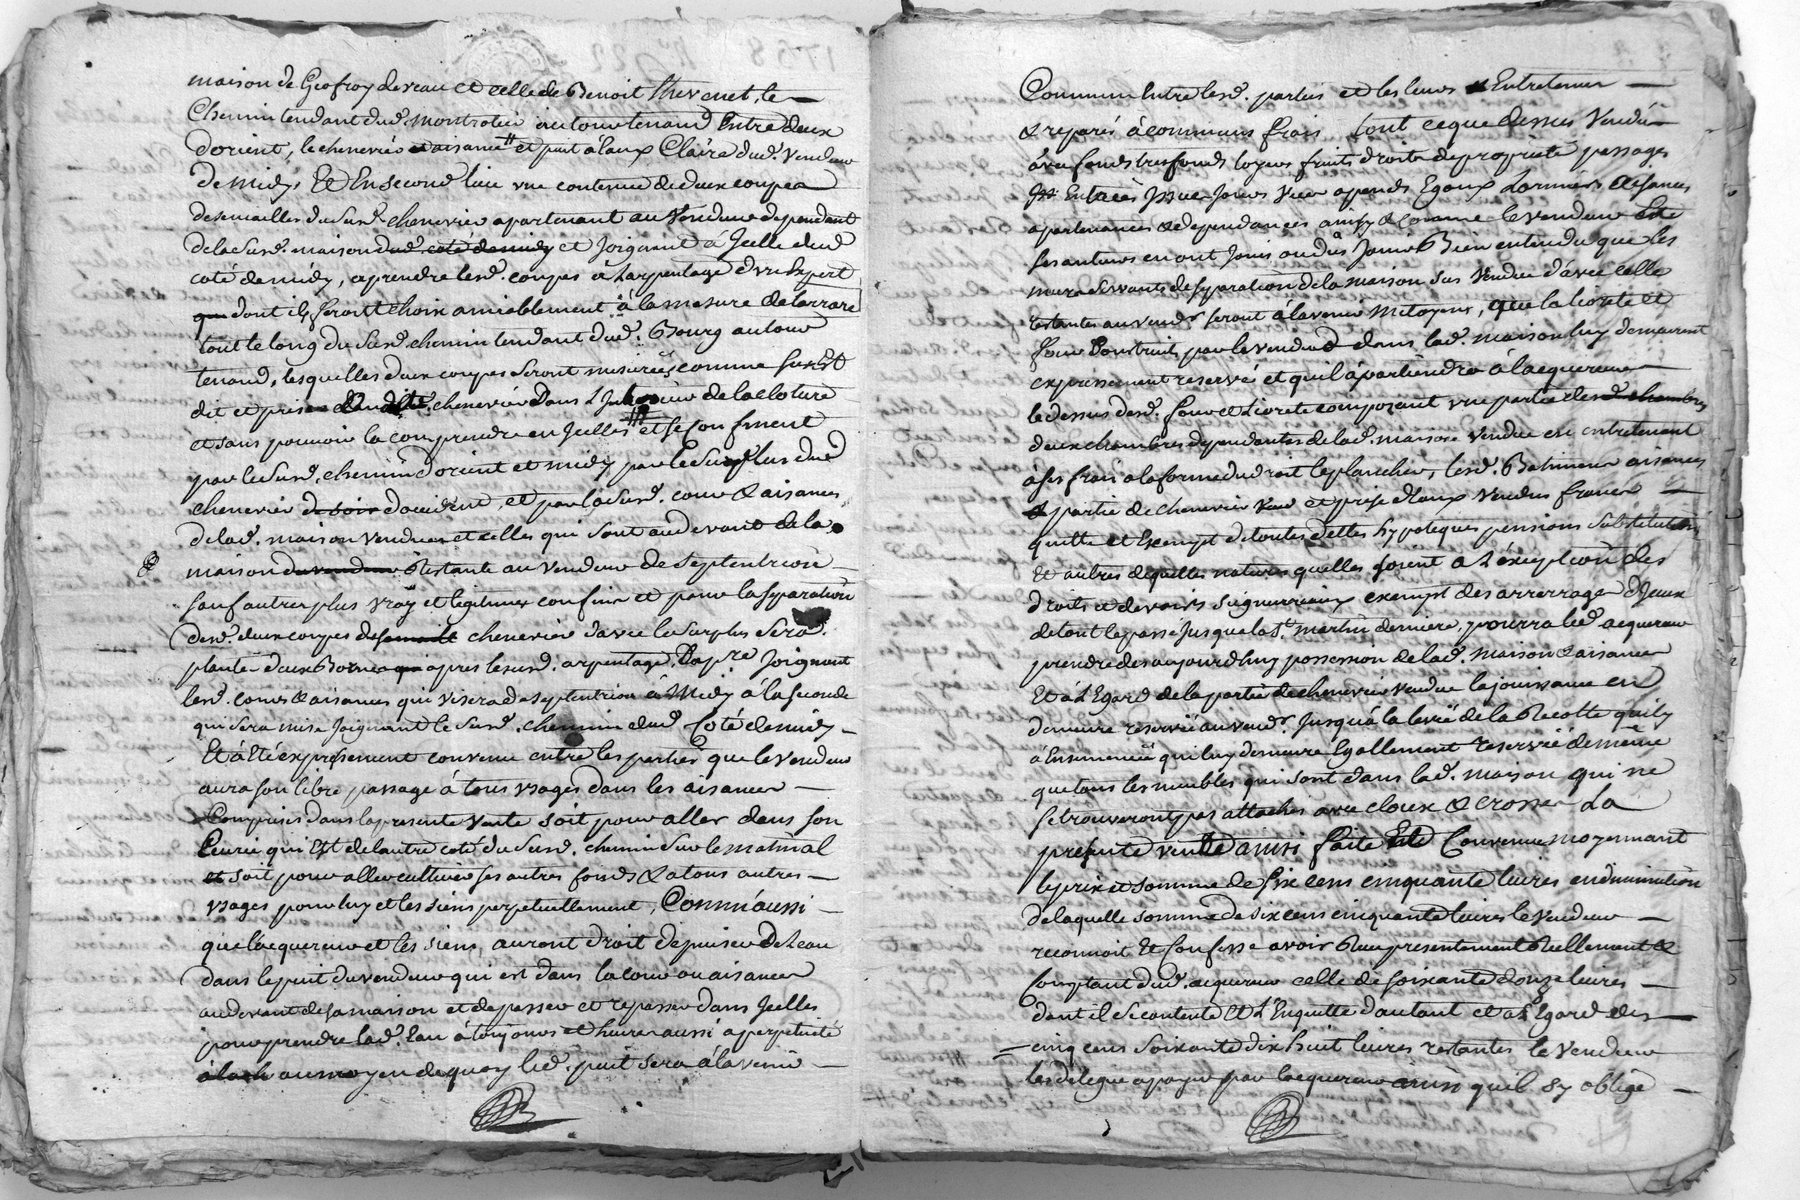 maison de Geofroy deveau et celle de Benoit thevenet, le
Chemin tendant dud. montrotier au tour tenand Entre deux
dorient, le chenevier et aisance et puit a laux Claire dud. Vendeur
de midy, Et En second lieu une contenue de deux coupes
de semailles du susd. chenevier apartenant au Vendeur dependant
de la susd. maison dud. coté de midy et Joignant á Jcelle dud
coté de midy, a prendre lesd. coupes á Larpentage d'un Expert
que dont ils feront choix amiablement à la mesure de larrare
tout le long du susd. chemin tendant dud. Bourg autour
tenand, lesquelles deux coupes seront mesurées comme sus Est
dit et prise dans led. chenevier dans L'Interieur de la cloture
et sans pouvoir la comprendre en Jcelles et se confinent
par le susd. chemin d'orient et midy par le surplus dud
chenevier de soir d'occident, et par la susd. cour & aisances
de lad. maison vendue et celles qui sont au devant de la
maison du vendeur Restante au vendeur de septentrion
sauf autres plus vray et legitimes confins et pour la separation
desd. deux coupes de semaille chenevier d'avec le surplus sera
planté deux Bornes qui apres lesusd. arpentage, La pre Joignant
lesd. cours & aisances qui visera de septentrion à Midy à la seconde
qui sera mise Joignant le susd. chemin dud Coté de midy
Et á Eté expressement convenu entre les parties que le Vendeur
aura son libre passage à tous usages dans les aisances
Comprises dans la presente vente soit pour aller dans son
Ecurie qui Est de l'autre coté du susd. chemin sur le matinal
et soit pour aller cultiver ses autres fonds & a tous autres
usages pour luy et les siens perpetuellement, Comm'aussi
que l'acquereur et les siens, auront droit de puiser de L'eau
dans le puit du vendeur qui est dans la cour ou aisances
au devant de sa maison et de passer et repasser dans Jcelles
pour prendre lad. Eau á toujours et heure aussi a perpetuité
au moyen de quoy led. puit sera á lavenir
Commun Entre lesd. parties et les leurs Entretenu
& reparés à communs frais tout ce que dessus Vendu
avec fonds tresfonds loyers fruits droits de proprieté passages
Entrées Jssues Jours Vues apends Egoux Larmiers aisances
apartenances & dependances ainsy & comme le vendeur Et
ses auteurs en ont Joui ou dû Jouir Bien entendu que les
murs servants de separation de la maison sus Vendue d'avec celle
restantes au vendr seront à lavenir mitoyens, que la livrete et
four Construits par le vendeur dans lad. maison luy demeurent
expressement reservé et quil apartiendra à l'acquereur
le dessus desd. four et Livrete composant une partie des chambres
deux chambres dependantes de lad. maison vendue en entretenant
à ses frais a la forme du droit le plancher, lesd. Batiments aisances
& partie de chenevier et prise d'eaux vendus francs
quitte et Exempt de toutes dettes hypoteques pensions substitutions
Et autres de quelles natures quelles soient a L'exception des
droits et devoirs seigneuriaux exempt des arrerages d'Jceux
de tout le passé jusqua la st. martin derniere, pourra led. acquereur
prendre des aujourdhuy possession de lad. maison & aisances
Et à L'Egard de la partie de chenevier vendue la jouissance en
demeure reservée au vendr. Jusqu'á la levée de la Recolte quil y
à Ensemencée qui luy demeure Egallement reservée de même
que tous les meubles qui sont dans lad. maison qui ne
se trouveront pas attachés avec cloux & crosses La
presente vente ainsi faite Et Convenue moyennant
le prix et somme de six cens cinquante livres en diminution
de laquelle somme de six cens cinquante livres le vendeur
reconnoit Et Confesse avoir Reçu presentement Reellement &
Comptant dud. acquereur celle de soixante douze livres
dont il se contente Et L'Enquitte d'autant et a L'Egard des
cinq cens soixante dix huit livres restantes le Vendeur
les delegue a payer par lacquereur ainsi quil sy oblige